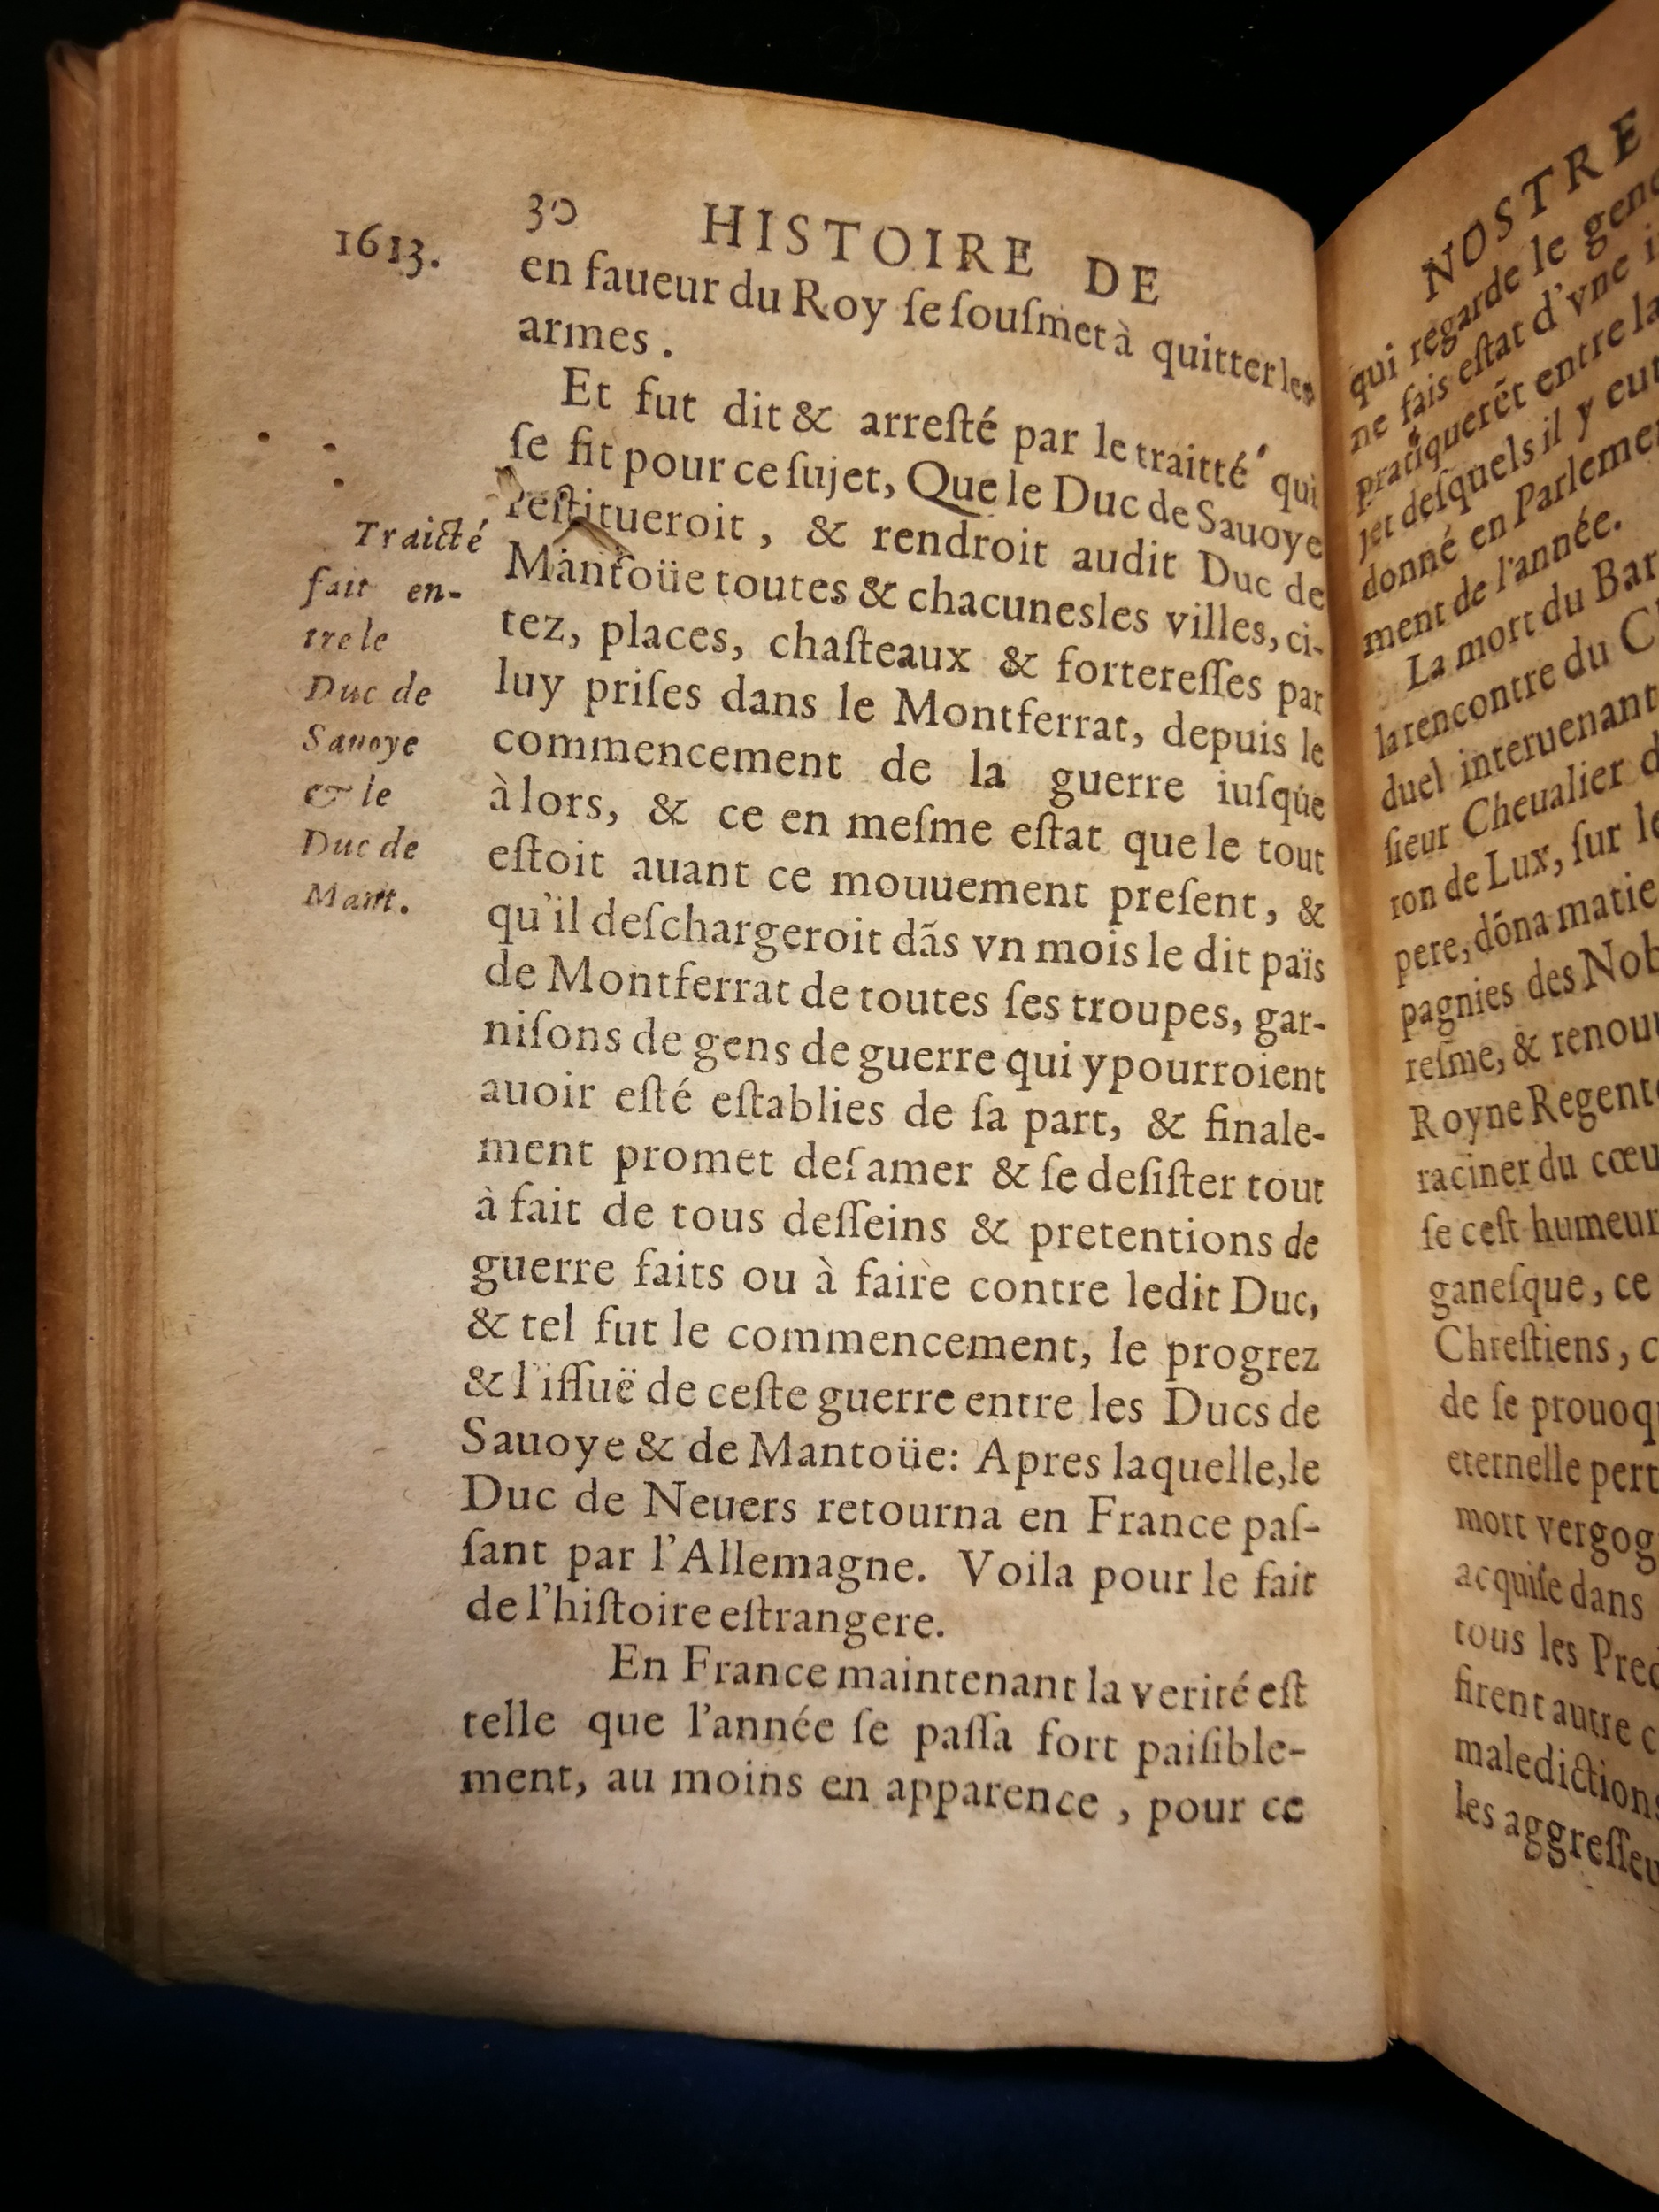 30 HISTOIRE DE
1613.
en faueur du Roy ſe ſouſmet à quitter les
armes.
Et fut dit & arreſté par le traitté qui
ſe fit pour ce ſujet, Que le Duc de Sauoye
reſtitueroit, & rendroit audit Duc de
Mantoüe toutes & chacunes les villes, ci-
tez, places, chaſteaux & fortereſſes par
luy priſes dans le Montferrat, depuis le
commencement de la guerre iuſque
à lors, & ce en meſme eſtat que le tout
eſtoit auant ce mouuement preſent, &
qu'il deſchargeroit dãs vn mois le dit païs
de Montferrat de toutes ſes troupes, gar-
niſons de gens de guerre qui y pourroient
auoir eſté eſtablies de ſa part, & finale-
ment promet deſamer & ſe deſiſter tout
à fait de tous deſſeins & pretentions de
guerre faits ou à faire contre ledit Duc,
& tel fut le commencement, le progrez
& l'iſſuë de ceſte guerre entre les Ducs de
Sauoye & de Mantoüe: Apres laquelle, le
Duc de Neuers retourna en France paſ-
ſant par l'Allemagne. Voila pour le fait
de l'hiſtoire eſtrangere.
En France maintenant la verité eſt
telle que l'année ſe paſſa fort paiſible-
ment, au moins en apparence, pour ce
Traicté
fait en-
tre le
Duc de
Sauoye
& le
Duc de
Mant.
NOSTRE
qui regarde le
ne fais eſtat d'vne
pratiquerẽt entre la
jet deſquels il y eut
donné en
ment de l'année.
La mort du
la rencontre du
duel interuenant
ſieur Cheualier
ron de Lux, ſur
pere, dõna
pagnies des
reſme, &
Royne
raciner du
ſe ceſt humeur
ganeſque, ce
Chreſtiens,
de ſe
eternelle
mort
acquiſe dans
tous les
firent autre
malediction
les